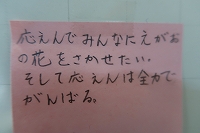 応えんでみんなにえがお
の花をさかせたい。
そして応えんは全力で
がんばる。